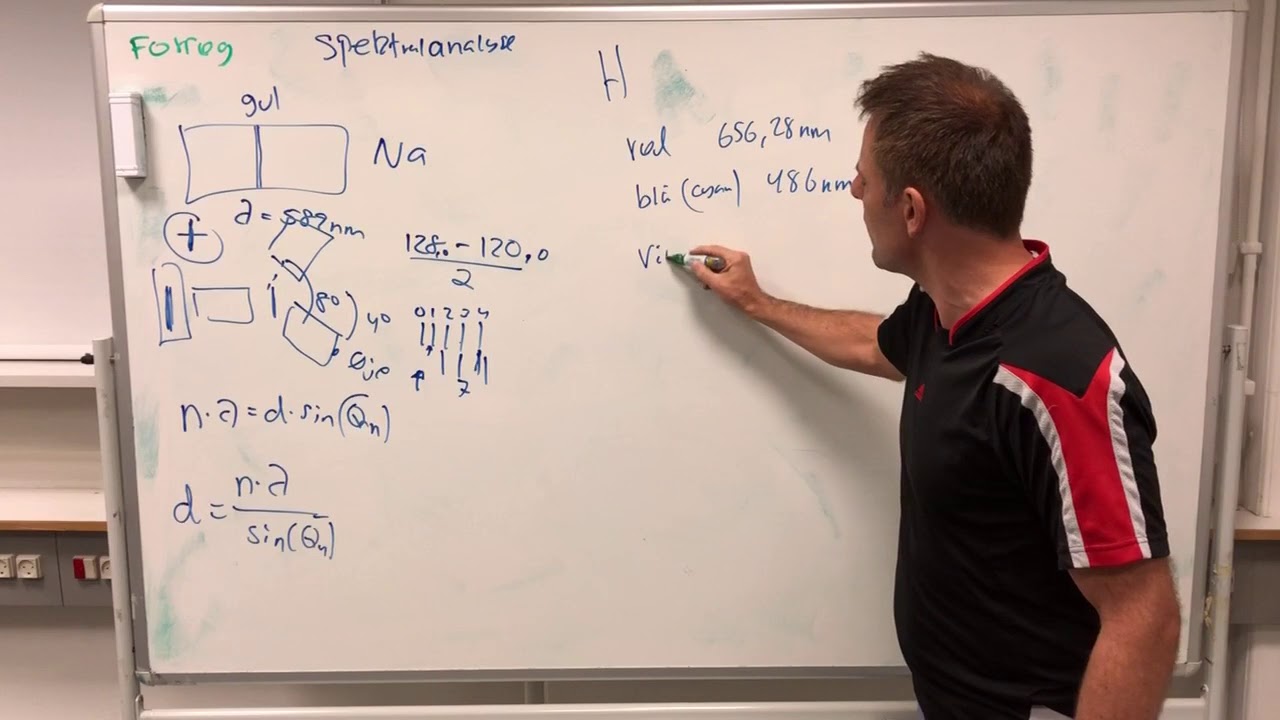 Forsøg
Spektralanalyse
gul
Na
λ = 589nm
128,0 - 120,0
2
80
40
Øje
0 1 2 3 4
7
n·λ = d·sin(θn)
d = n·λ
sin(θn)
H
rød 656,28nm
blå (cyan) 486nm
Vi